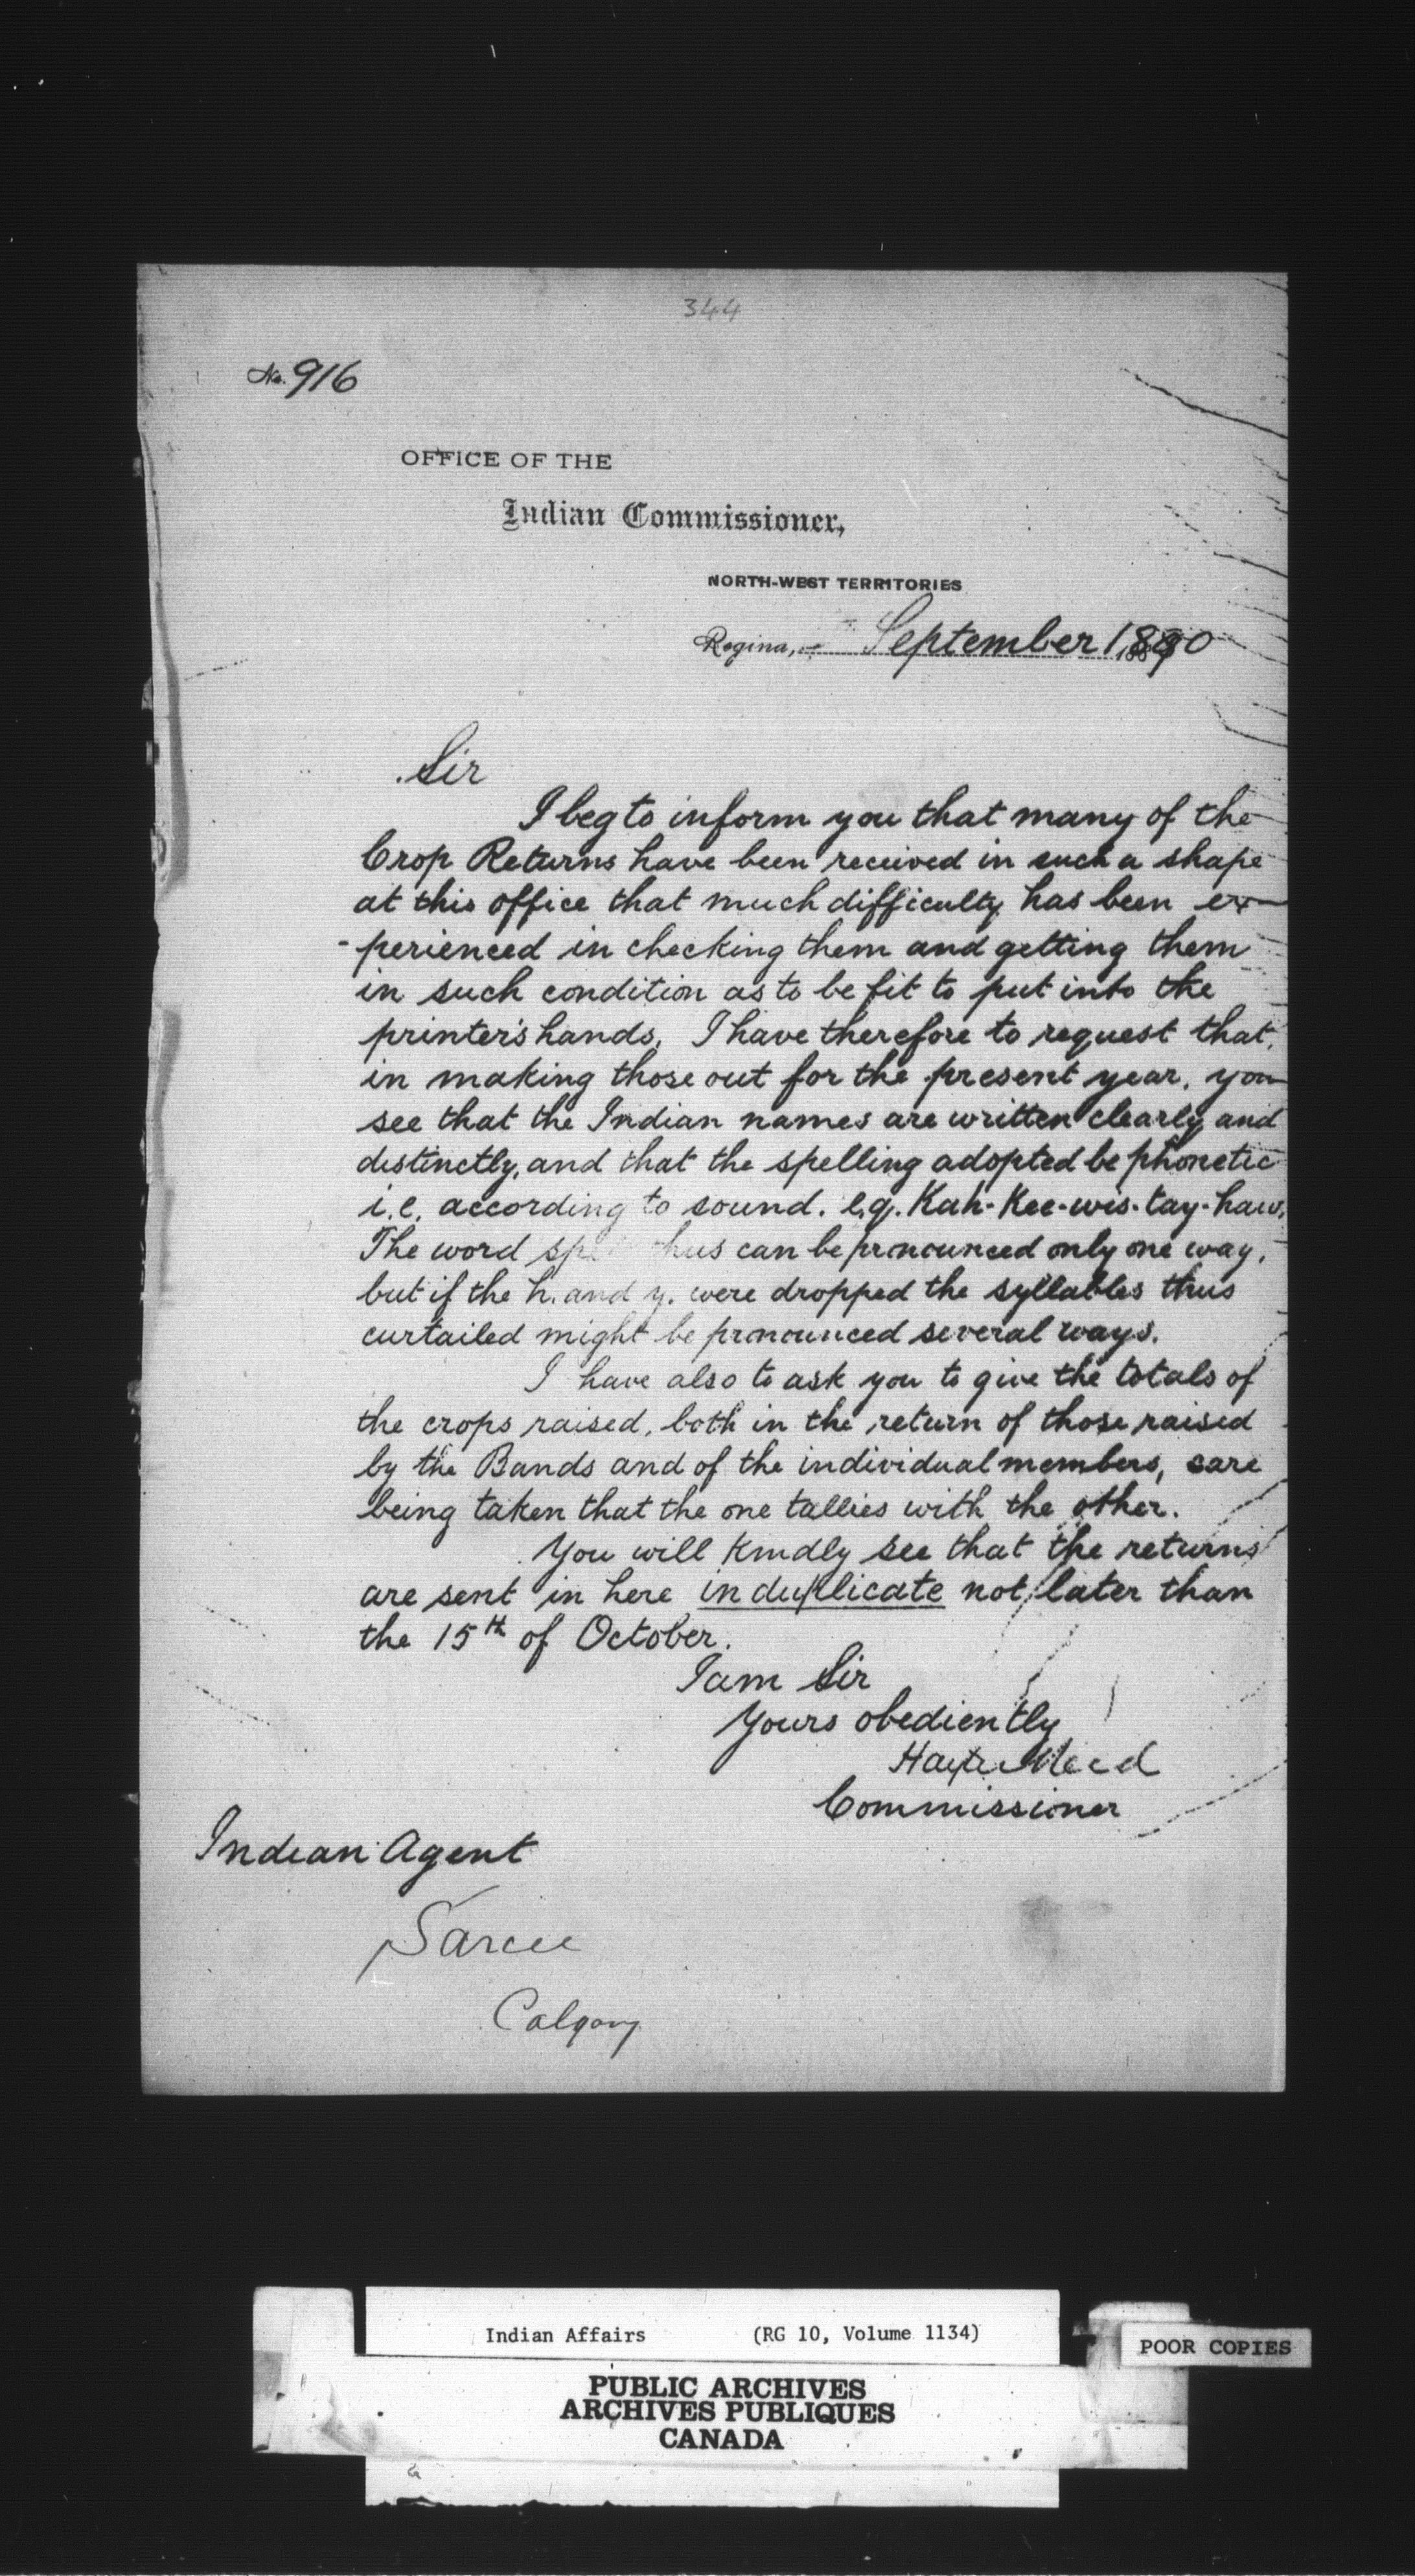 344
No. 916
OFFICE OF THE
Indian Commissioner,
NORTH-WEST TERRITORIES
Regina, September 1890
Sir
I beg to inform you that many of the
Crop Returns have been received in such a shape
at this office that much difficulty has been ex-
-perienced in checking them and getting them
in such condition as to be fit to put into the
printer's hands. I have therefore to request that,
in making those out for the present year, you
see that the Indian names are written clearly and
distinctly, and that the spelling adopted be phonetic
i.e. according to sound. e.g. Kah-Kee-wis-tay-haw.
The word thus can be pronounced only one way,
but if the h. and y. were dropped the syllables thus
curtailed might be pronounced several ways.
I have also to ask you to give the totals of
the crops raised, both in the return of those raised
by the Bands and of the individual members, care
being taken that the one tallies with the other.
You will kindly see that the returns
are sent in here in duplicate not later than
the 15th of October.
I am Sir
Yours obediently
Hayter Reed
Commissioner
Indian Agent
Sarcee
Calgary
Indian Affairs (RG 10, Volume 1134)
POOR COPIES
PUBLIC ARCHIVES
ARCHIVES PUBLIQUES
CANADA